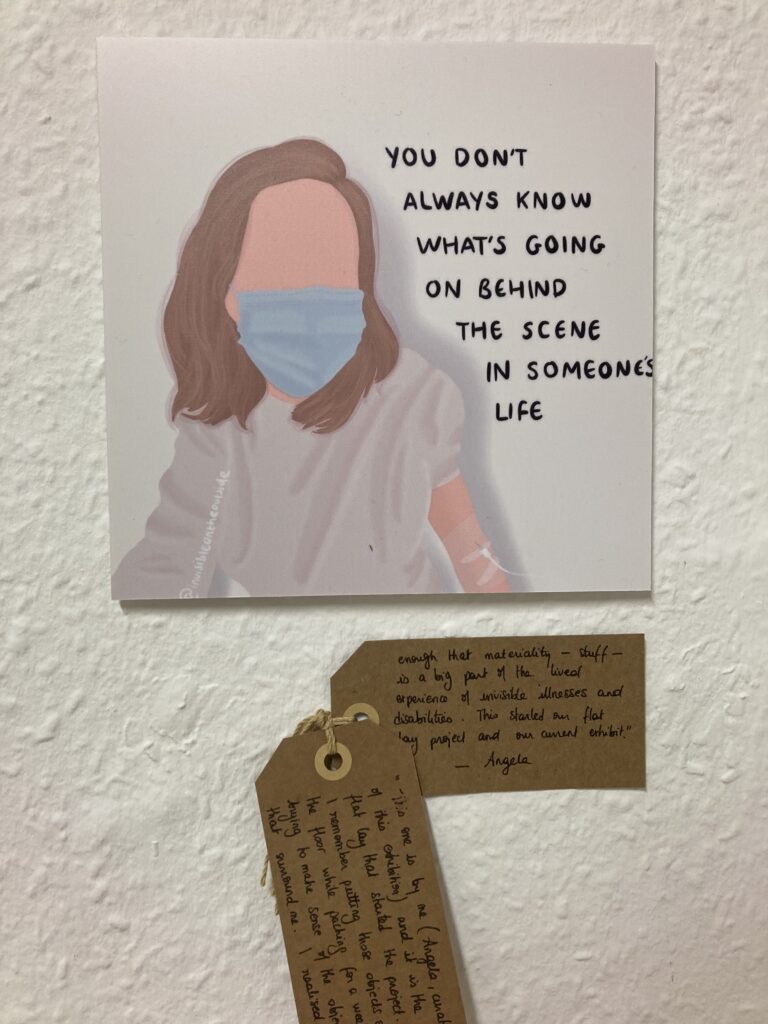 YOU DON'T
ALWAYS KNOW
WHAT'S GOING
ON BEHIND
THE SCENE
IN SOMEONE'S
LIFE
@invisibleontheoutside
"This one is by me (Angela,
of this exhibition) and it is the
flat lay that started the project.
I remember putting those objects
the floor while packing for a
trying to make sense of the
that surround me. I realised
enough that materiality – stuff –
is a big part of the lived
experience of invisible illnesses and
disabilities. This started our flat
lay project and our current exhibit."
– Angela